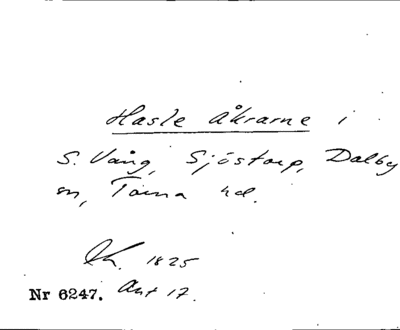 Hasle åkrarne i
S. Vång, Sjöstorp, Dalby
sn, Torna hd.
Lh. 1825
Nr 6247. Akt 17.